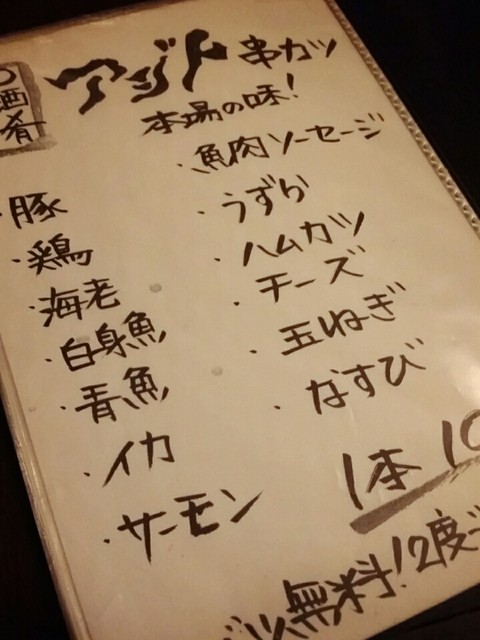 酒肴
アジト 串カツ
本場の味!
・魚肉ソーセージ
・うずら
・ハムカツ
・チーズ
・玉ねぎ
・なすび
・豚
・鶏
・海老
・白身魚
・青魚
・イカ
・サーモン
1本 10
無料!2度